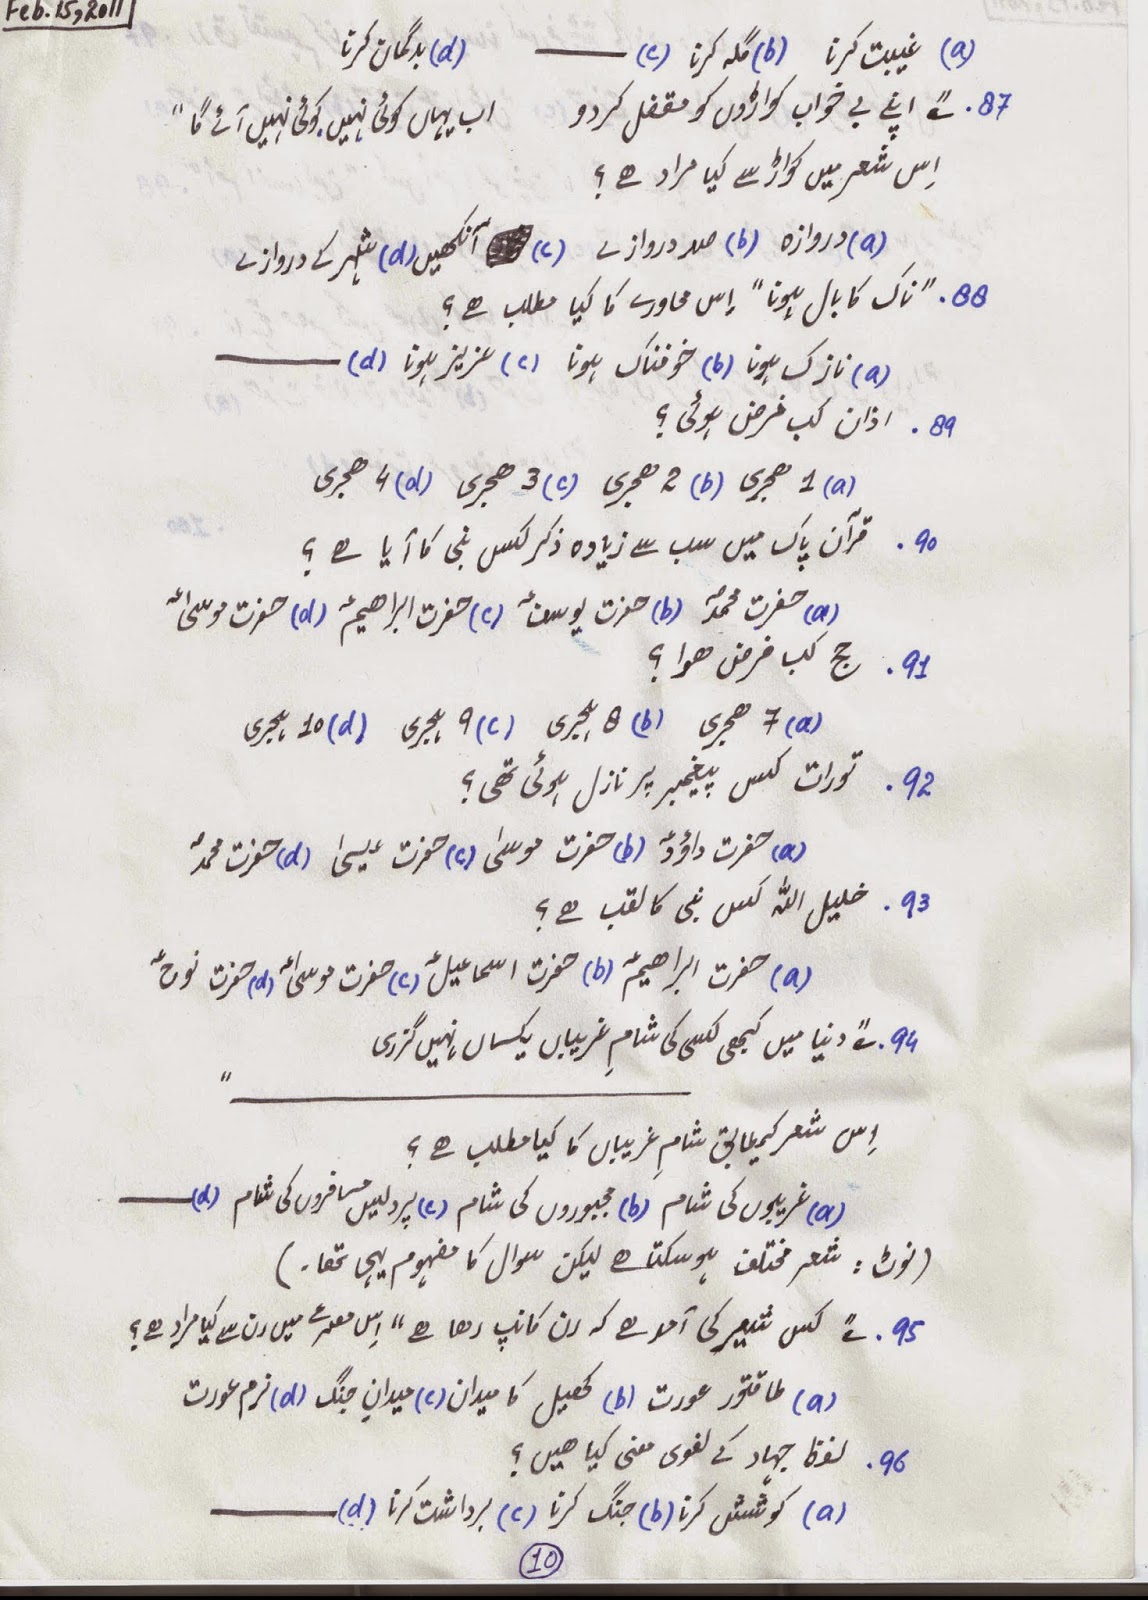 Feb. 15, 2011
(a) غیبت کرنا (b) گلہ کرنا (c) ــــــــــ (d) بدگمان کرنا
87. ؎" اپنے بے خواب کواڑوں کو مقفل کر دو اب یہاں کوئی نہیں، کوئی نہیں آئے گا"
اِس شعر میں کواڑ سے کیا مراد ھے ؟
(a) دروازہ (b) صدر دروازے (c) آنکھیں (d) شہر کے دروازے
88. "ناک کا بال ہونا" اِس محاورے کا کیا مطلب ھے ؟
(a) نازک ہونا (b) خوفناک ہونا (c) عزیز ہونا (d) ــــــــــ
89. اذان کب فرض ہوئی ؟
(a) 1 ھجری (b) 2 ھجری (c) 3 ھجری (d) 4 ھجری
90. قرآن پاک میں سب سے زیادہ ذکر کس نبی کا آیا ھے ؟
(a) حضرت محمدؐ (b) حضرت یوسفؑ (c) حضرت ابراھیمؑ (d) حضرت موسیٰؑ
91. حج کب فرض ھوا ؟
(a) 7 ھجری (b) 8 ہجری (c) 9 ہجری (d) 10 ہجری
92. تورات کس پیغمبر پر نازل ہوئی تھی ؟
(a) حضرت داؤدؑ (b) حضرت موسیٰ (c) حضرت عیسیٰ (d) حضرت محمدؐ
93. خلیل اللہ کس نبی کا لقب ھے ؟
(a) حضرت ابراھیمؑ (b) حضرت اسماعیلؑ (c) حضرت موسیٰؑ (d) حضرت نوحؑ
94. ؎" دنیا میں کبھی کسی کی شامِ غریباں یکساں نہیں گزری
ــــــــــــــــــــ "
اِس شعر کیمطابق شامِ غریباں کا کیا مطلب ھے ؟
(a) غریبوں کی شام (b) مجبوروں کی شام (c) پردیس مسافروں کی شام (d) ــــــــــ
(نوٹ : شعر مختلف ہو سکتا ھے لیکن سوال کا مفہوم یہی تھا۔)
95. ؎" کس شیر کی آمد ھے کہ رن کانپ رھا ھے" اِس مصرعے میں رن سے کیا مراد ھے ؟
(a) طاقتور عورت (b) کھیل کا میدان (c) میدانِ جنگ (d) نرم عورت
96. لفظ جہاد کے لغوی معنی کیا ھیں ؟
(a) کوشش کرنا (b) جنگ کرنا (c) برداشت کرنا (d) ــــــــــ
10